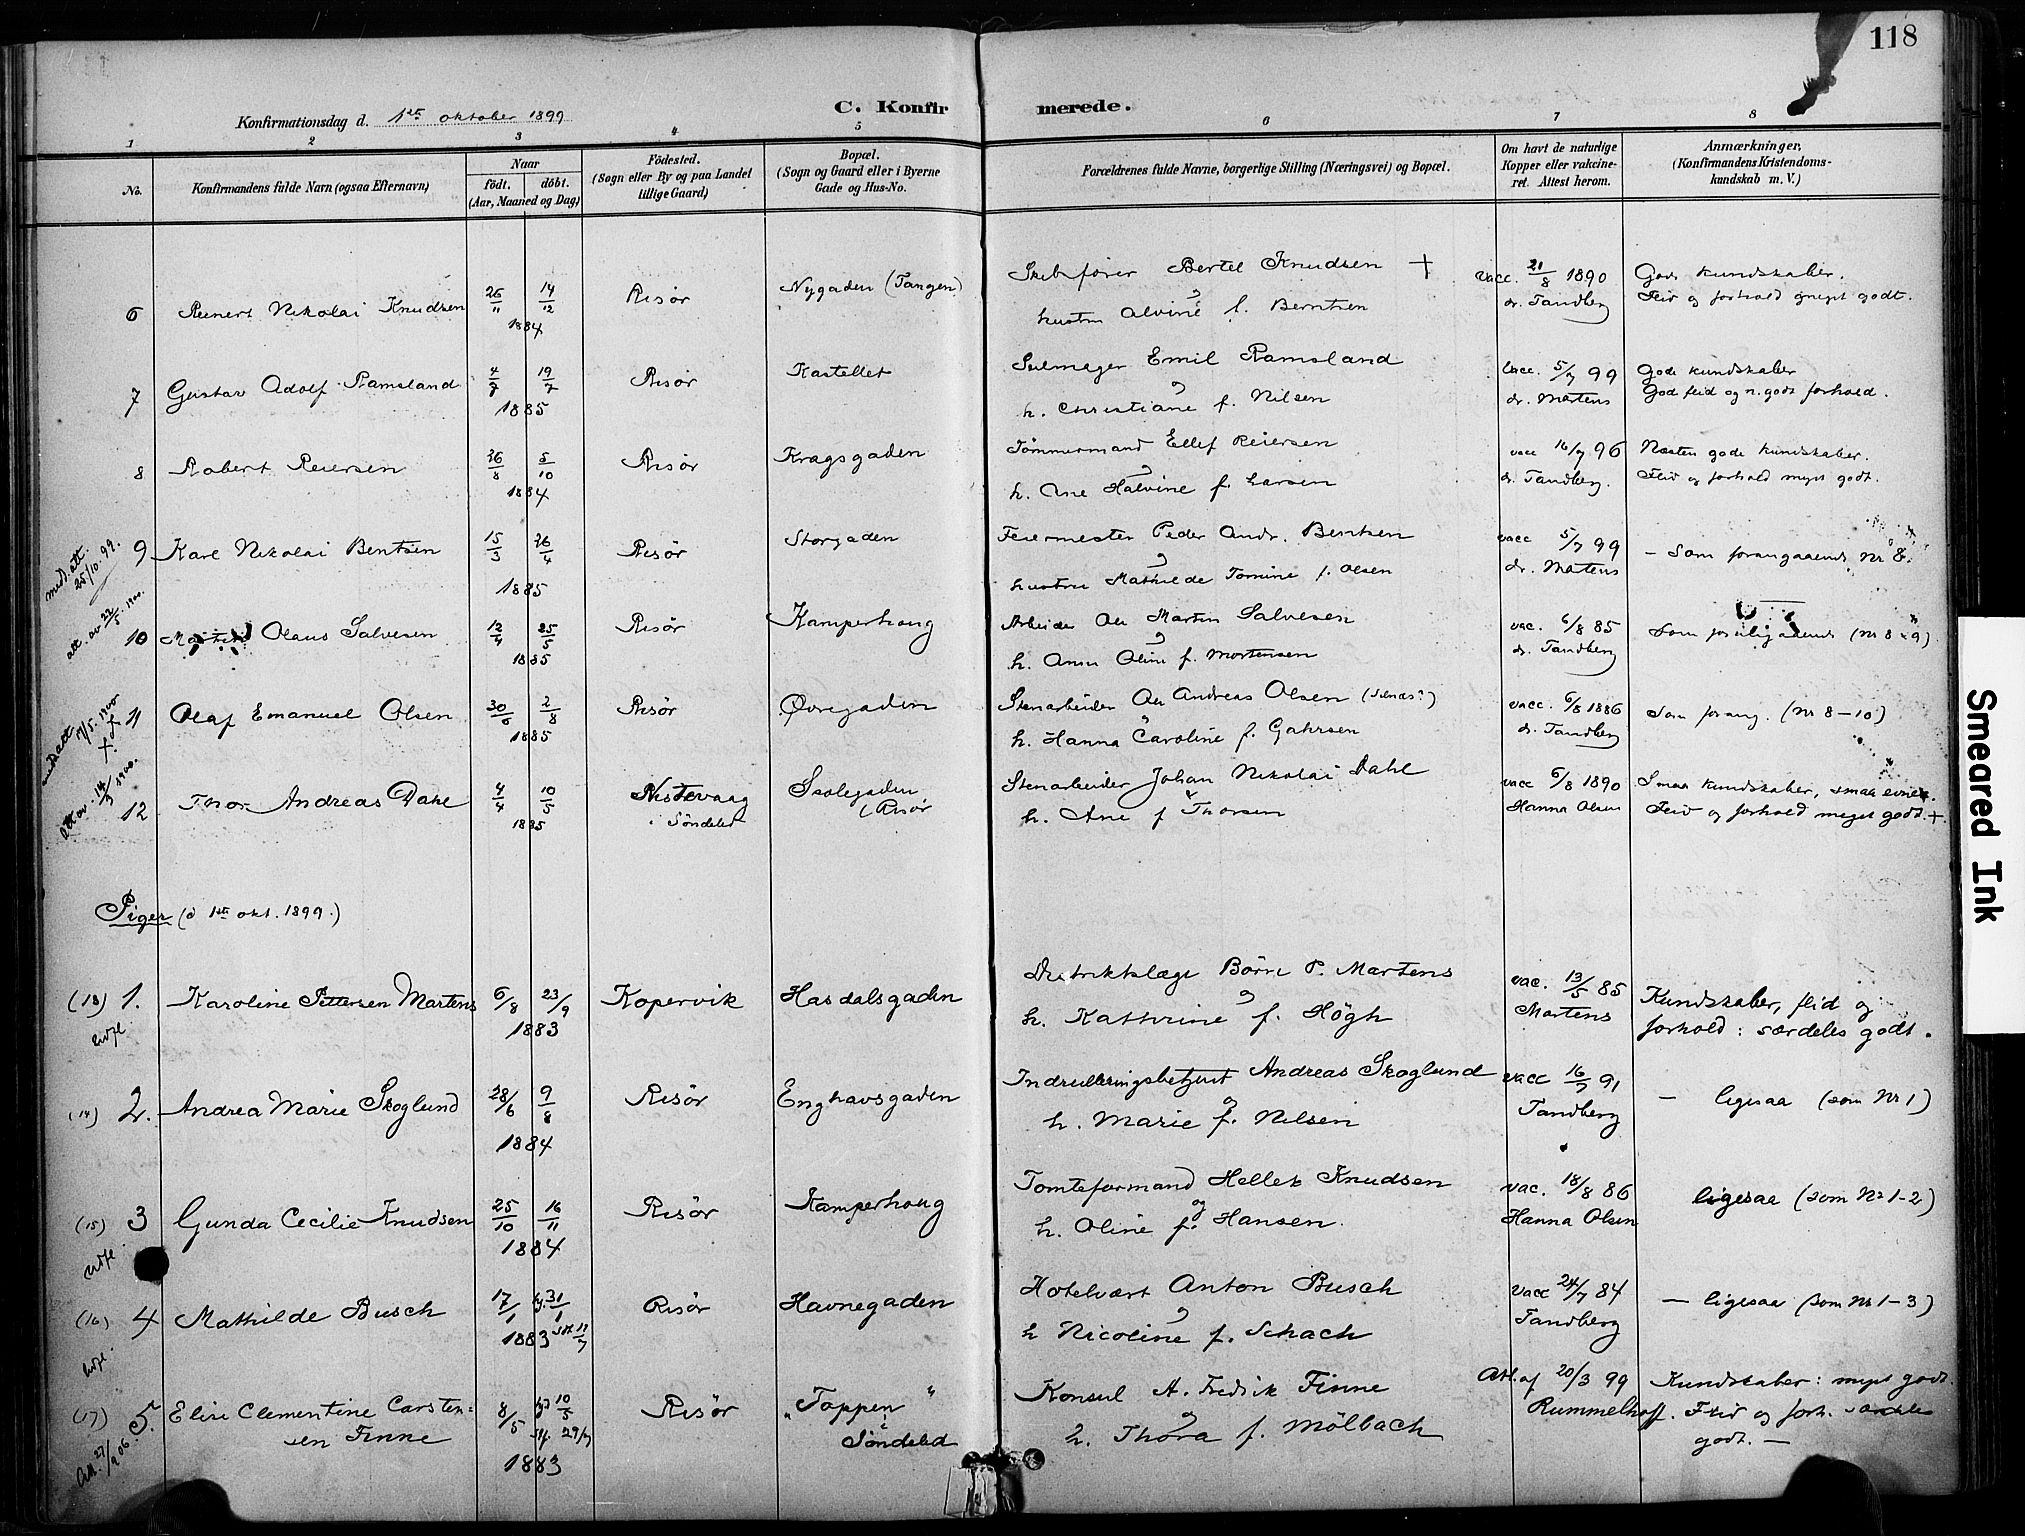 118
C. Konfirmerede.
Konfirmationsdag d. 1ste oktober 1899
1 2 3 4 5 6 7 8
No.
Konfirmandens fulde Navn (ogsaa Efternavn)
Naar
födt. döbt.
(Aar, Maaned og Dag)
Födested.
(Sogn eller By og paa Landet
tillige Gaard)
Bopæl.
(Sogn og Gaard eller i Byerne
Gade og Hus-No.
Forældrenes fulde Navne, borgerlige Stilling (Næringsvei) og Bopæl.
Om havt de naturlige
Kopper eller vakcine-
ret. Attest herom.
Anmærkninger,
(Konfirmandens Kristendoms-
kundskab m. V.)
6 Reinert Nikolai Knudsen 26/11 14/12 1884 Risör Nygaden (Tangen)
Skibsfører Bertel Knudsen +
og
hustru Alvine f. Berntsen
vacc. 21/8 1890
dr. Tandberg
Gode kundskaber.
Flid og forhold meget godt.
7 Gustav Adolf Ramsland 4/7 19/7 1885 Risör Kastellet
Seilmager Emil Ramsland
og
h. Christiane f. Nilsen
Vacc. 5/7 99
dr. Martens
Gode kundskaber
God flid og n. godt forhold.
8 Robert Reiersen 26/8 5/10 1884 Risör Kragsgaden
Tömmermand Ellef Reiersen
og
h. Ane Halvine f. Larsen
vacc 16/7 96
dr. Tandberg.
Næsten gode kundskaber.
Flid og forhold meget godt.
medd. att. 25/10. 99.
9 Karl Nikolai Bentsen 15/3 26/4 1885 Risör Storgaden
Feiermester Peder Andr. Bentsen
og
hustru Mathilde Tomine f. Olsen
vacc 5/7 99
dr. Martens
- Som forangaaende Nr 8.
att. av 22/5. 1900.
10 Olaus Salvesen 12/4 25/5 1885 Risör Kamperhoug
Arbeider Ole Martin Salvesen
og
h. Anne Oline f. Mortensen
vac. 6/8 85
dr. Tandberg
Som foreligaaende (Nr 8 - 9)
medd att 17/5. 1900
11 Olaf Emanuel Olsen 30/6 2/8 1885 Risör Øvregaden
Stenarbeider Ole Andreas Olsen
og
h. Hanna Caroline f. Gahrsen
vacc. 6/8 1886
dr. Tandberg
Som forang. (Nr 8-10)
att av. 14/3 1900.
12 Thor Andreas Dahl 4/4 10/5 1885
i Söndeled
Skolegaden
(Risör
Stenarbeider Johan Nikolai Dahl
og
h. Ane f Thorsen
vacc 6/8 1890
Hanna Olsen
Smaa kundskaber, smaa evner.
Flid og forhold meget godt. +
Piger (d 1ste okt. 1899.)
(13) 1. Karoline Pettersen Martens 6/8 23/9 1883 Kopervik Hasdalsgaden
Distriktslæge Börre P. Martens
og
h. Kathrine f. Högh
vac. 13/5 85
Martens
Kundskaber, flid og
forhold: særdeles godt.
(14) 2. Andrea Marie Skoglund 28/6 9/8 1884 Risör Enghavsgaden
Indrulleringsbetjent Andreas Skoglund
og
h. Marie f. Nilsen
vacc 16/7 91
Tandberg
- ligesaa (som Nr 1)
(15) 3 Gunda Cecilie Knudsen 25/10 16/11 1884 Risör Kamperhoug
Tomteformand Hellek Knudsen
og
h. Oline f. Hansen.
vac. 18/8 86
Hanna Olsen
ligesaa (som Nr 1-2)
(16) 4 Mathilde Busch 17/1 31/1 1883 Risör Havnegaden
Hotelvært Anton Busch
og
h Nicoline f. Schach
vacc 24/7 84
Tandberg
- ligesaa (som Nr 1-3)
(17) 5. Elise Clementine Carsten=
sen Finne
8/5 10/5
29/7
1883 Risör "Toppen"
i
Söndeled
Konsul A. Fredrik Finne
og
h. Thora f. Mölbach
Att. af 20/3 99
Rummelhoff.
Kundskaber: meget godt.
Flid og forh. særdeles
godt. -
Att. 27/9 06
Smeared Ink